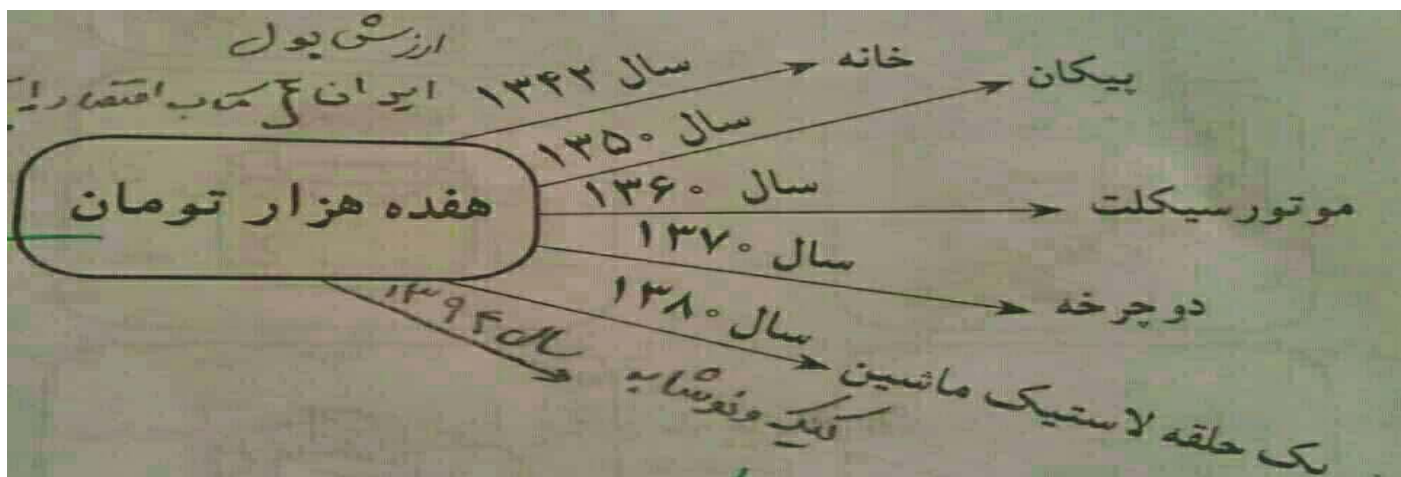 ارزش پول
ایران کتاب اقتصاد
هفده هزار تومان
سال ۱۳۴۲ خانه
سال ۱۳۵۰ پیکان
سال ۱۳۶۰ موتورسیکلت
سال ۱۳۷۰ دوچرخه
سال ۱۳۸۰ یک حلقه لاستیک ماشین
سال ۱۳۹۴ کیک و نوشابه